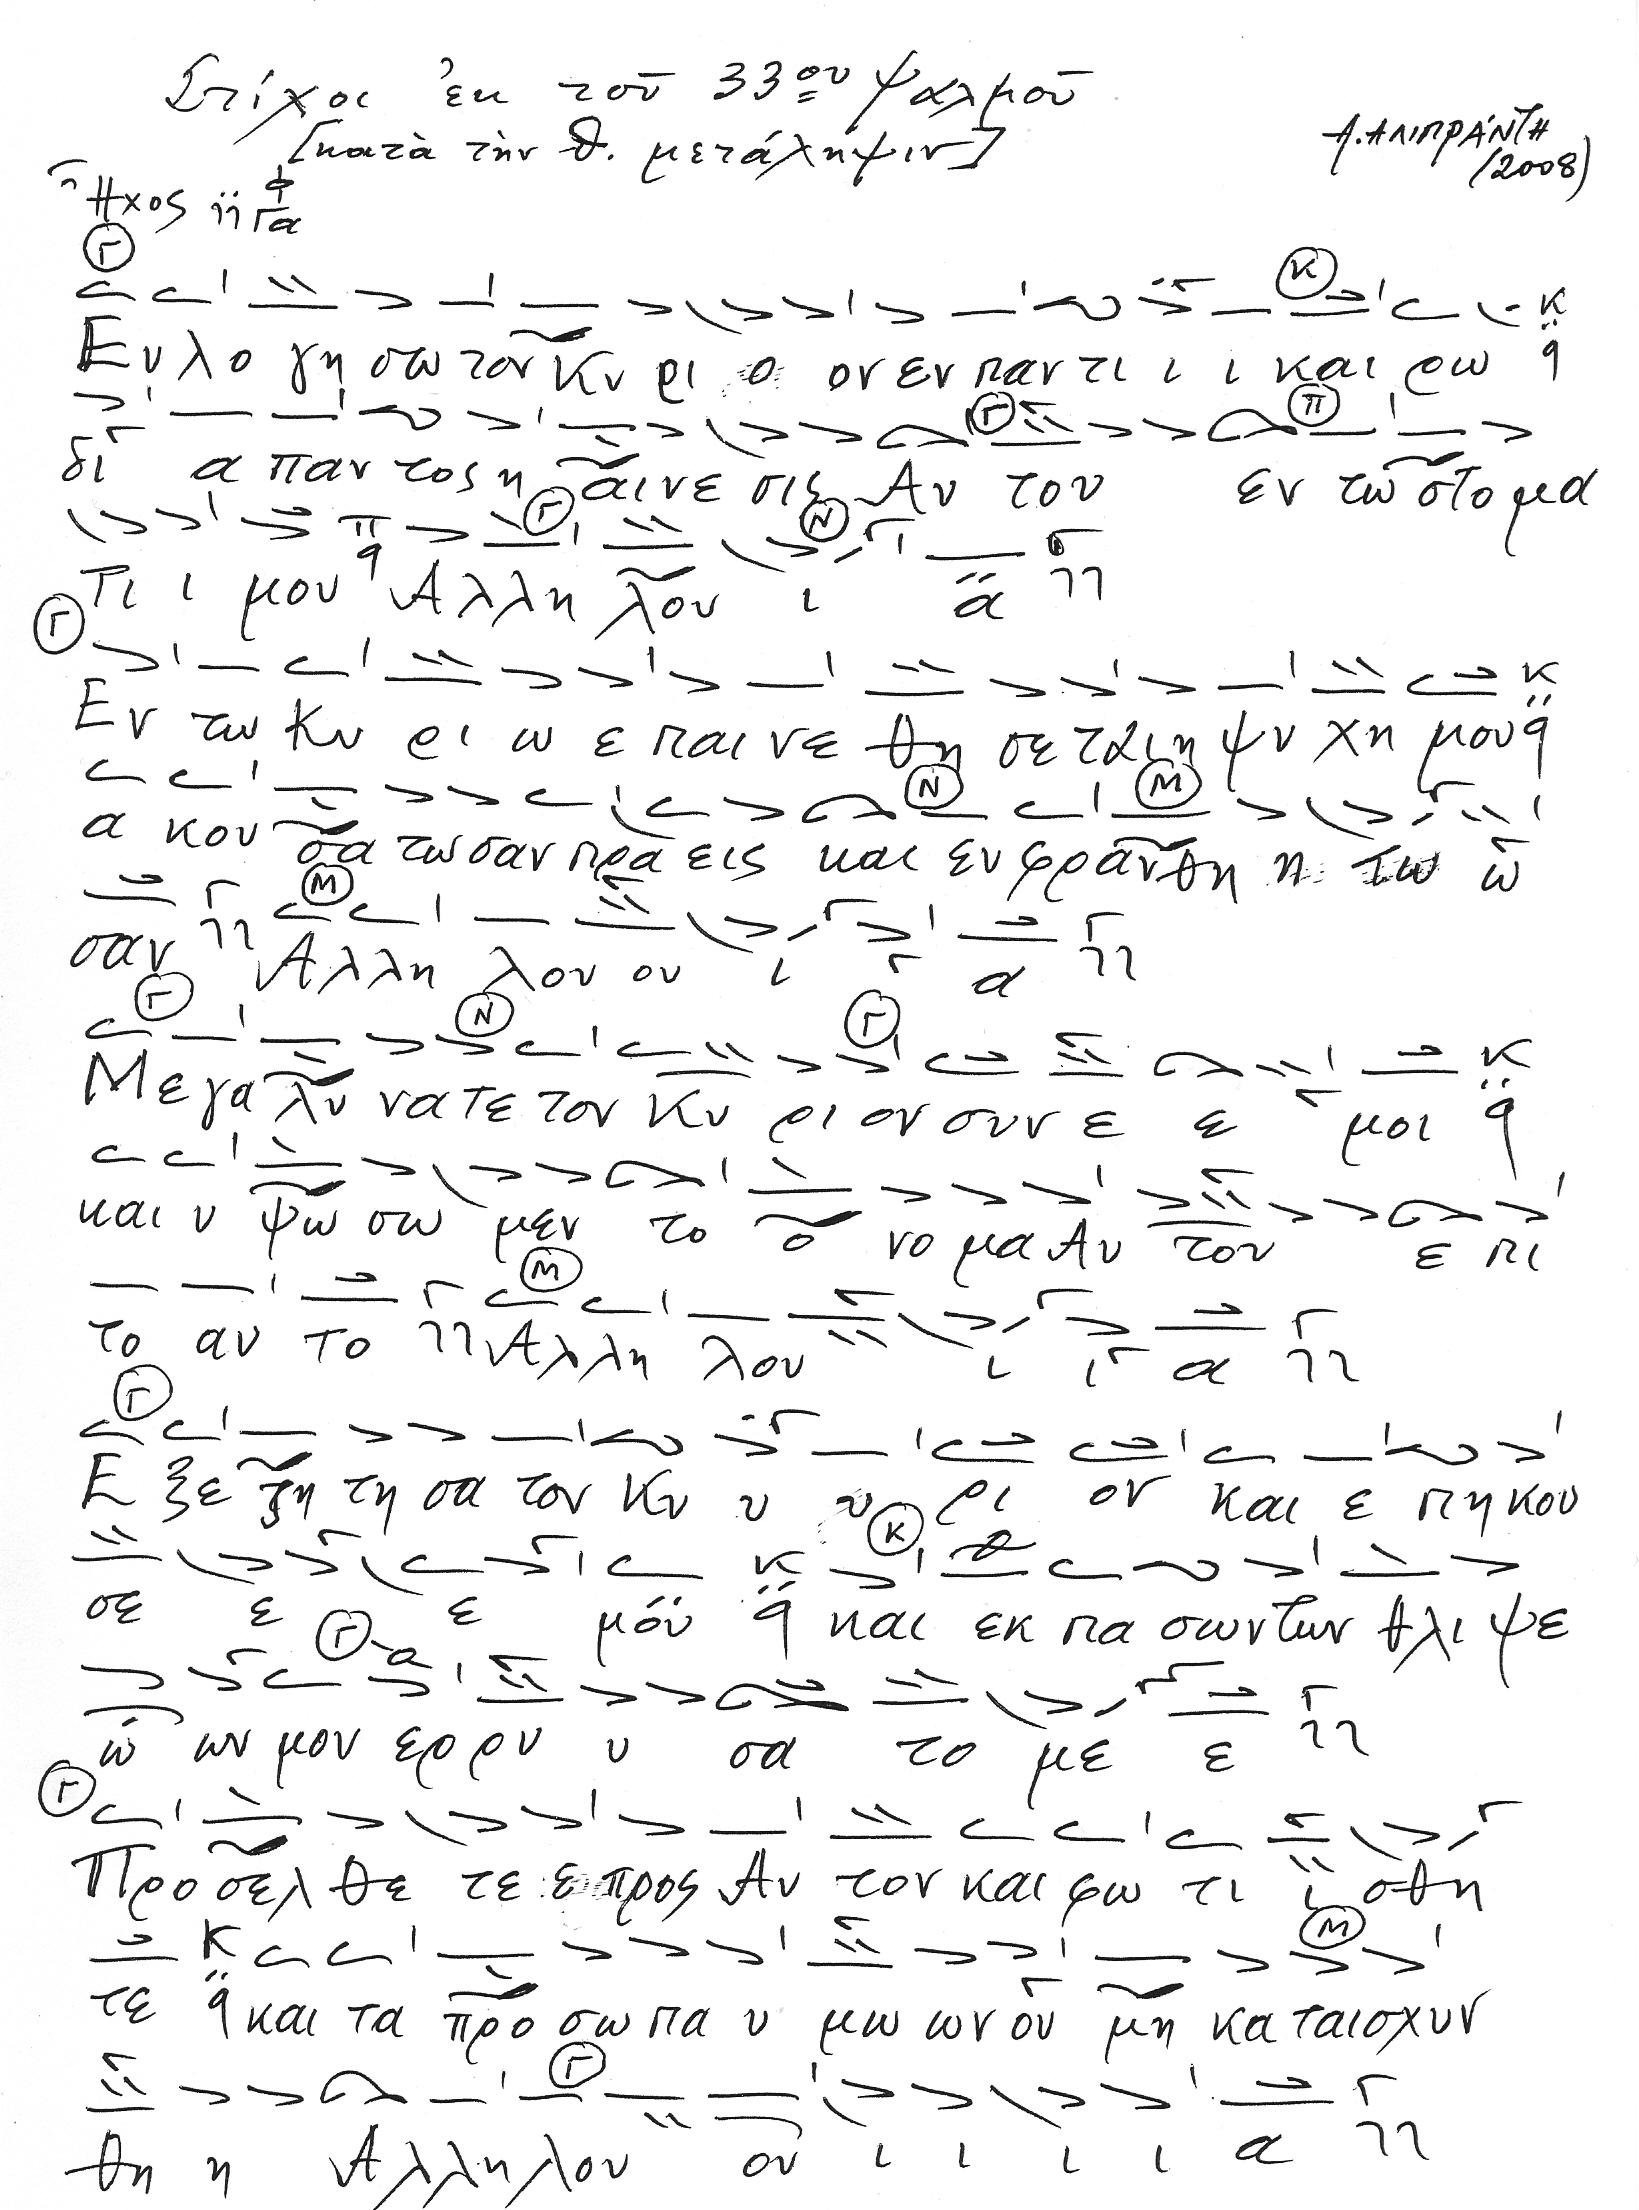 Στίχοι ἐκ τοῦ 33ου ψαλμοῦ
[κατὰ τὴν θ. μετάληψιν]
Α. ΑΛΙΠΡΑΝΤΗ
(2008)
Ἦχος Γα
Ευ λο γη σω τον Κυ ρι ο ον εν παν τι ι ι και ρω
δι α παν τος η αι νε σις Αυ του εν τω στο μα
τι ι μου Αλλη λου ι α
Εν τω Κυ ρι ω ε παι νε θη σε ται η ψυ χη μου
α κου σα τω σαν πρα εις και ευ φραν θη η τω ω
σαν Αλλη λου ου ι ι α
Με γα λυ να τε τον Κυ ρι ον συν ε ε μοι
και υ ψω σω μεν το ο νο μα Αυ του ε πι
το αυ το Αλλη λου ι ι α
Ε ξε ζη τη σα τον Κυ υ υ ρι ον και ε πη κου
σε ε ε μου και εκ πα σων των θλι ψε
ω ων μου ερρυ υ σα το με ε
Προ σελ θε τε ε προς Αυ τον και φω τι ι σθη
τε και τα προ σω πα υ μω ων ου μη κα ταισχυν
θη η Αλληλου ου ι ι ι ι α